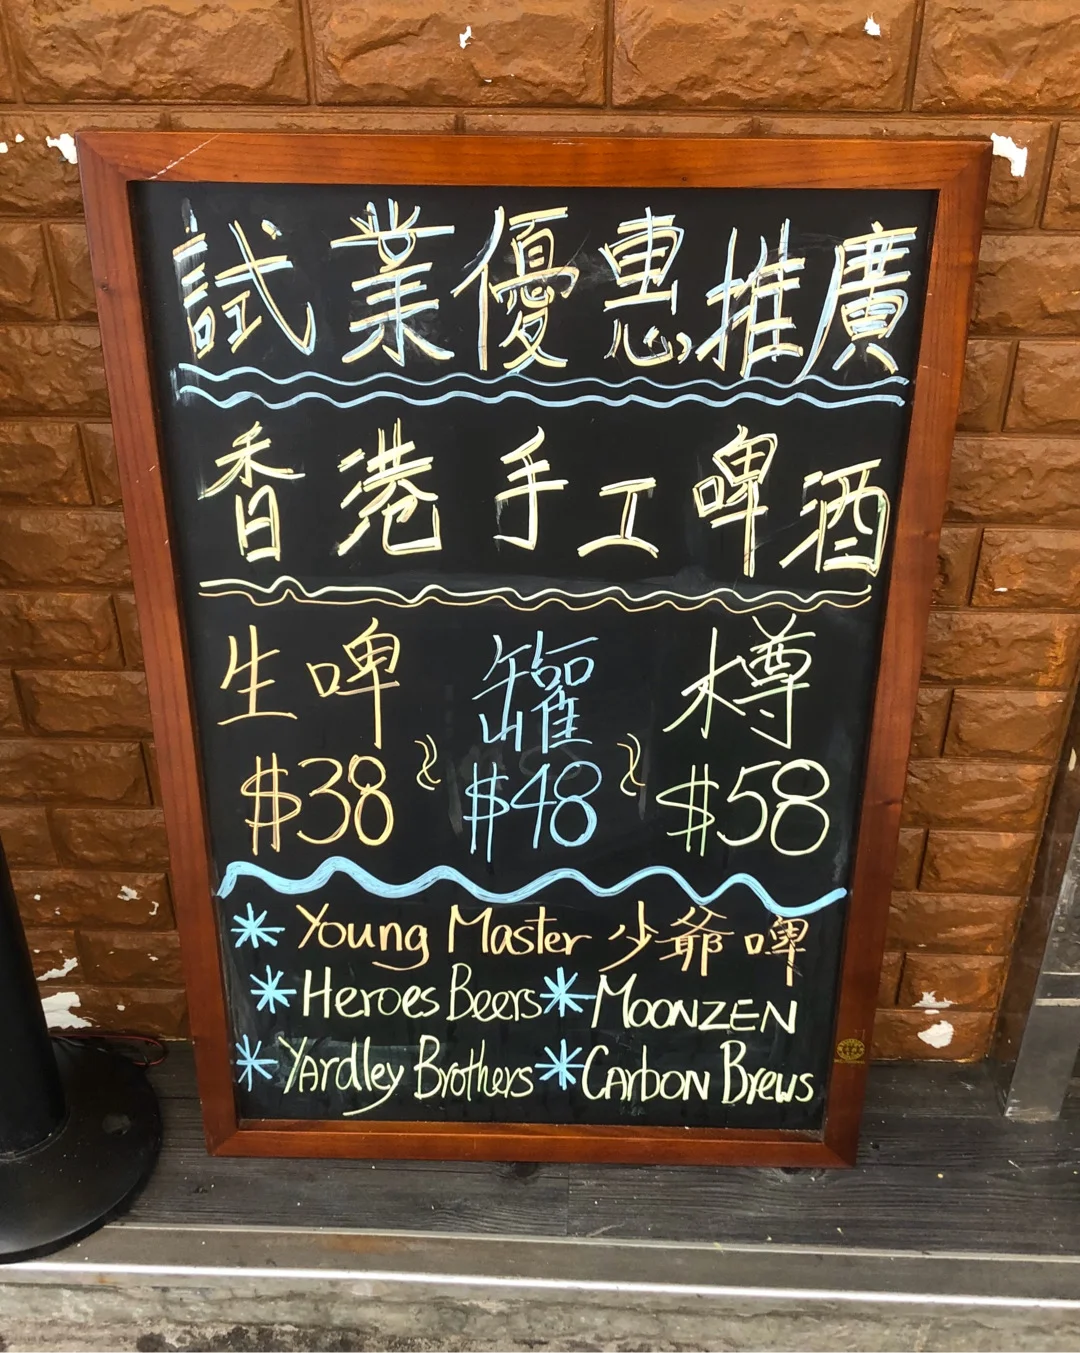 試業優惠推廣
香港手工啤酒
生啤 罐 樽
$38 $48 $58
* Young Master 少爺啤
* Heroes Beers * MOONZEN
* Yardley Brothers * Carbon Brews